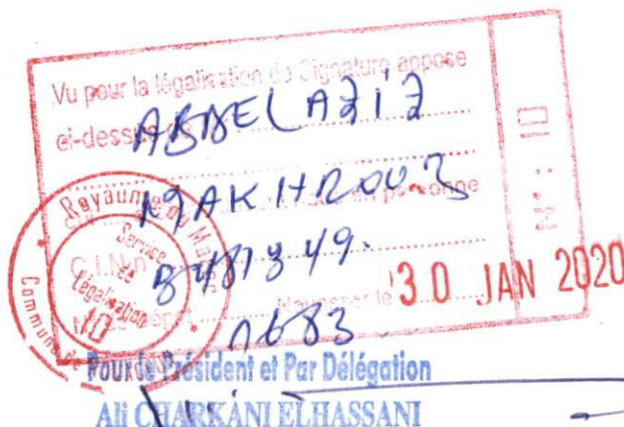 Vu pour la légalisation de Signature appose
ci-dessus
ABDELAZIZ
MAKHROUZ
C.I.N n
B481349.
le 30 JAN 2020
n683
Royaume du
Service
de
Légalisation
10
Commune de
Pour le Président et Par Délégation
Ali CHARKÁNI ELHASSANI